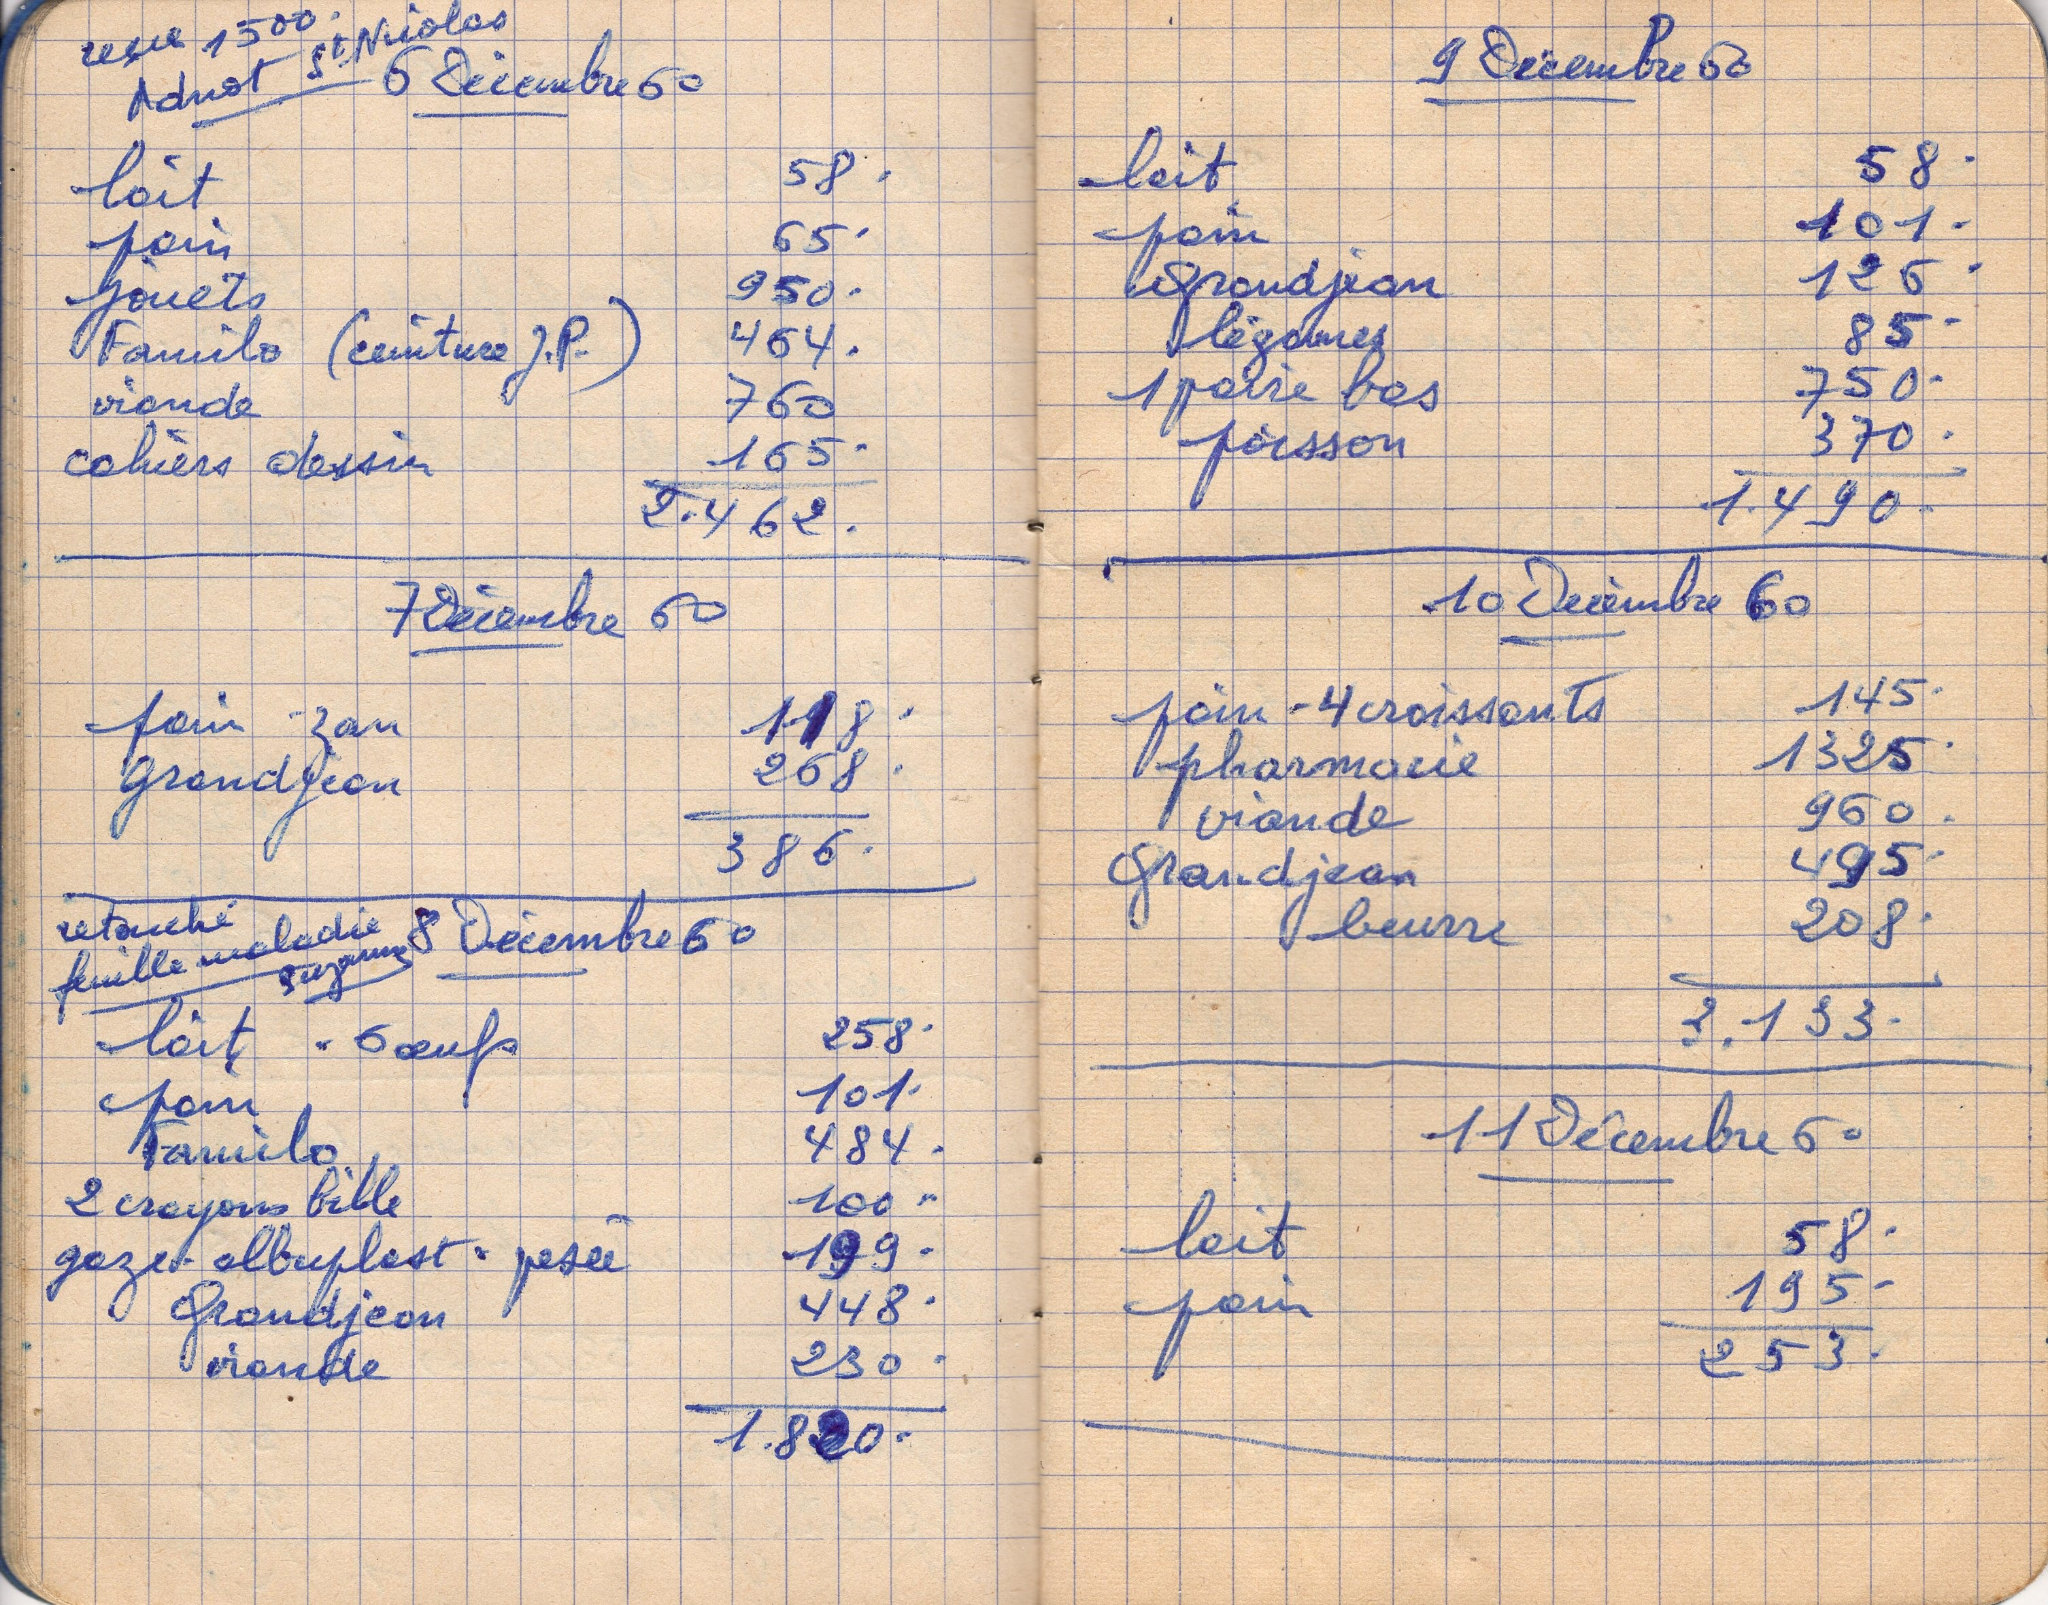 reçu 1500.
Adnot St Nicolas
6 Décembre 60
lait 58.
pain 65.
jouets 950.
Familo (ceinture J.P.) 464.
viande 760
cahiers dessin 165.
2.462.
7 Décembre 60
pain - zan 118.
Grandjean 268.
386.
retouché
feuille maladie
Suzanne
8 Décembre 60
lait - 6 œufs 258.
pain 101.
Familo 484.
2 crayons bille 100.
gaze - albuplast - pesée 199.
Grandjean 448.
viande 230.
1.820.
9 Décembre 60
lait 58.
pain 101.
Grandjean 126.
légumes 85.
1 paire bas 750.
poisson 370.
1.490.
10 Décembre 60
pain - 4 croissants 145.
pharmacie 1325.
viande 960.
Grandjean 495.
beurre 208.
3.133.
11 Décembre 60
lait 58.
pain 195.
253.